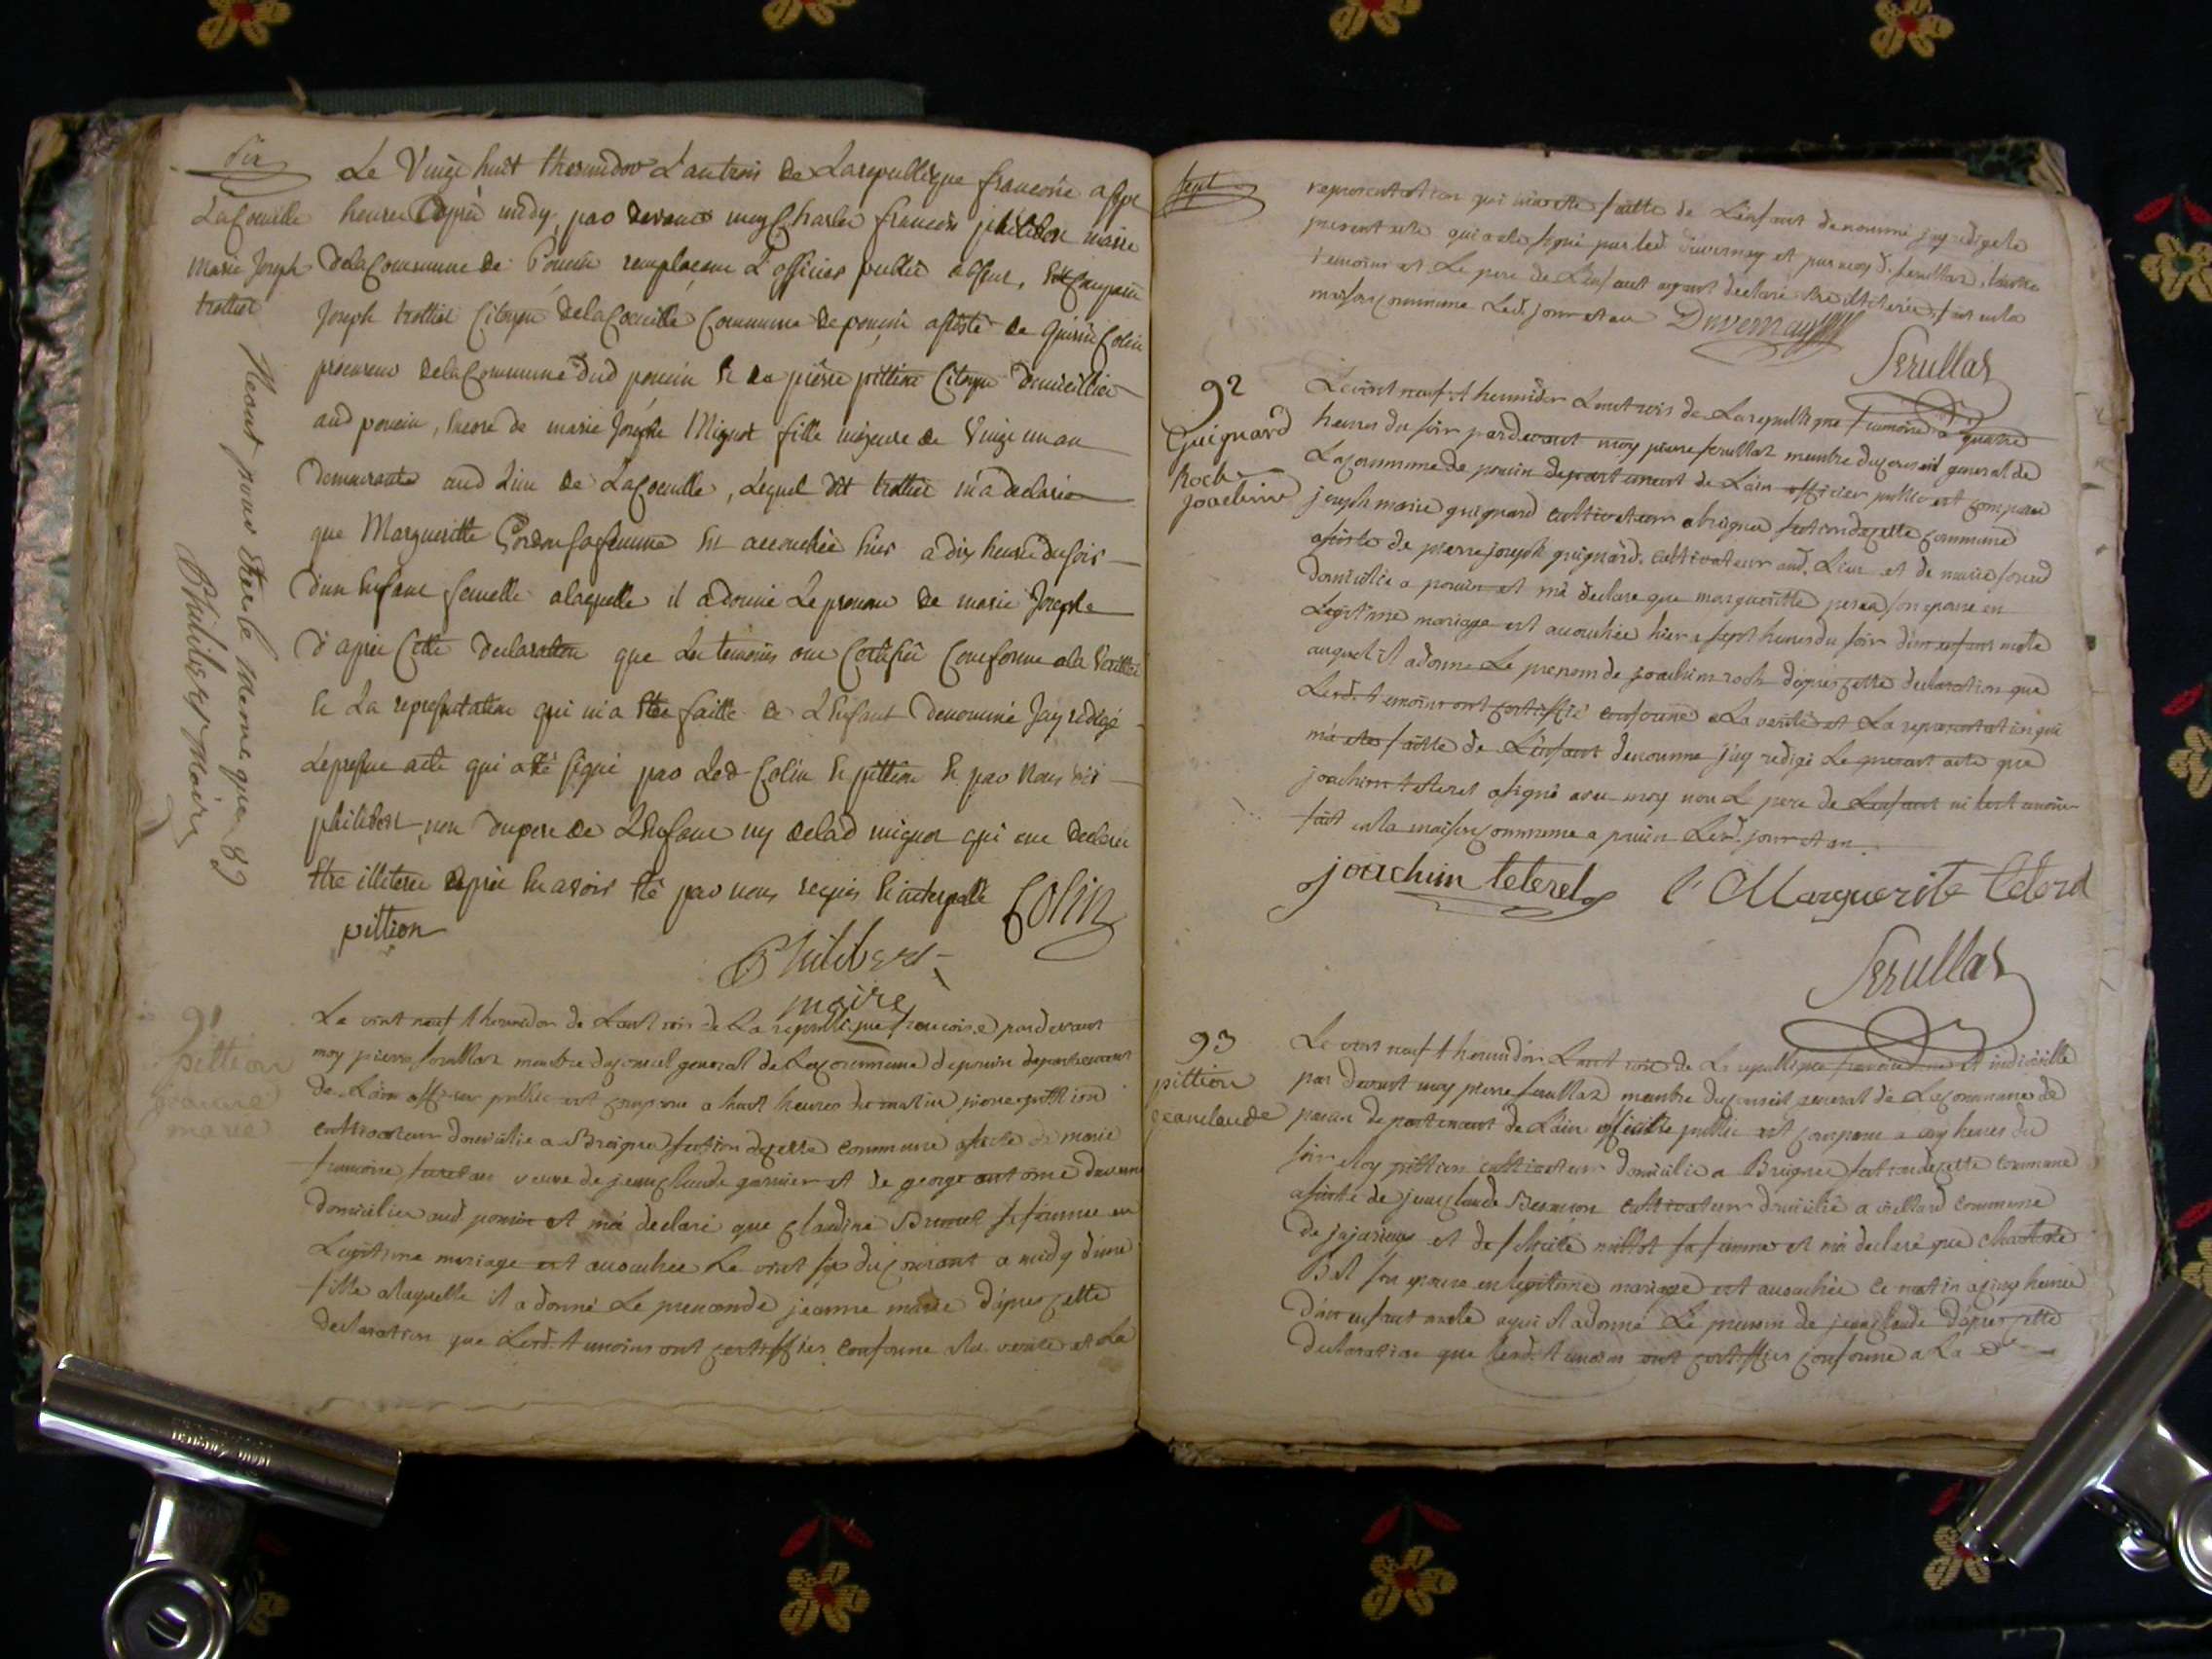 Six
La Coeuille
Marie Joseph
trottier
Neant pour être le meme que 89
Philibert Maire
Le Vingt huit thermidor L'an trois de La republique francoise a sept
heures d'après midy, par devant moy Charles francois philibert maire
de la Commune de Poncin remplaceant L'officier public absent, Est Comparu
Joseph trottier Citoyen de la Coeuille Commune de poncin assisté de Quirin Colin
procureur de la Commune dud poncin Et de pierre pittion Citoyen domicillier
aud poncin, Encore de marie Josephe Mignot fille majeure de Vingt un an
demeurante aud Lieu de La Coeuille, Lequel dit trottier m'a declaré
que Margueritte Gordon sa femme Est accouchée hier a dix heures du soir
d'un Enfant femelle a laquelle il a donné Le prenom de marie Josephe
d'après Cette declaration que Les temoins ont Certifiée Conforme a la Verité
Et La representation qui m'a Eté faitte de L'Enfant denommé Jay redigé
Le present acte qui a été signé par Led Colin Et pittion Et par Nous dit
philibert, non du pere de L'Enfant ny de lad mignot qui ont declaré
Etre illiteré après En avoir Eté par nous requis Et interpellé
Colin
pittion
Philibert
maire
91
pittion
jeanne
marie
Le vint neuf thermidor de Lant rois de La republique francoise pardevant
moy pierre serullaz membre du conseil general de La commune de poncin departement
de Lain officier public est comparu a huit heures du matin pierre pittion
cultivateur domicilie a Breigne section de cette commune assiste de marie
francoise veuve de jean claude garnier et de george antoine duverney
domicilies aud. poncin et ma declaré que claudine Brunet sa femme en
Legitime mariage est accouchee Le vint six du courant a midy d'une
fille a laquelle il a donné Le prenom de jeanne marie d'apres cette
declaration que Lesd. temoins ont certiffiés conforme a la verite et La
sept
representation qui ma ete faitte de L'enfant denommé jay redigé le
present acte qui a ete signé par led duvernay et par moy d. serullaz, Lautre
temoins et Le pere de L'enfant ayant declaré etre illiterés, fait en la
maison commune Led. jour et an
Duvernay
Serullaz
92
Guignard
Roch
joachim
Le vint neuf thermidor Lant rois de La republique francoise a quatre
heures du soir pardevant moy pierre serullaz membre du conseil general de
La commune de poncin departement de Lain officier public est comparu
joseph marie guignard cultivateur a breignes section de cette commune
assisté de pierre joseph guignard cultivateur aud. Lieu et de marie
domicilié a poncin et ma declare que margueritte son epouse en
Legitime mariage est accouchée hier a sept heures du soir d'un enfant male
auquel il a donné Le prenom de joachim roch d'apres cette declaration que
Lesd. temoins ont certiffié conforme a La verité et La representation qui
ma etes faitte de L'enfant denommé jay redigé Le present acte que
joachim teteret a signé avec moy non L pere de Lenfant ni temoin
fait en la maison commune a poncin Lesd. jour et an
joachim teterel l' Marguerite teterel
Serullaz
93
pittion
jeanclaude
Le vint neuf thermidor Lant rois de La republique francoise une et indivisible
par devant moy pierre serullaz membre du conseil general de La commune de
poncin departement de Lain officier public est comparu a cinq heures du
soir eloy pittion cultivateur domicilie a Breigne section de cette commune
assisté de jean claude cultivateur domicilié a commune
de jujurieux et de millot sa femme et ma declaré que charlotte
son epouse en legitime mariage est accouchée ce matin a cinq heures
d'un enfant male a qui il a donné Le prenom de jean claude d'apres cette
declaration que lesd. temoins ont certiffiés conforme a La